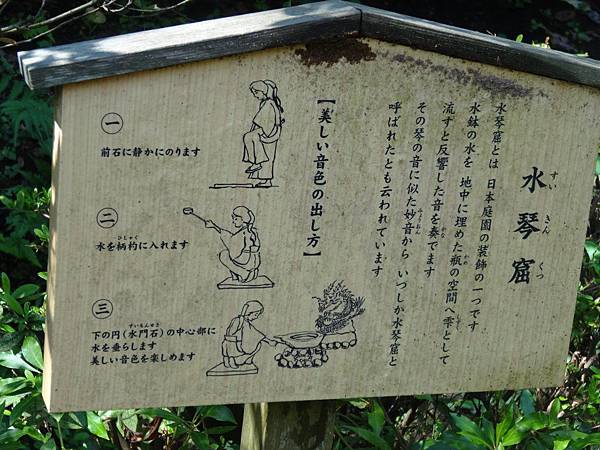 水琴窟
すいきんくつ
水琴窟とは 日本庭園の装飾の一つです
水鉢の水を 地中に埋めた瓶の空間へ雫として
かめ
しずく
流すと反響した音を奏でます
かな
その琴の音に似た妙音から いつしか水琴窟と
みょうおん
呼ばれたとも云われています
【美しい音色の出し方】
一
前石に静かにのります
二
ひしゃく
水を柄杓に入れます
三
すいもんせき
下の円(水門石)の中心部に
水を垂らします
美しい音色を楽しめます